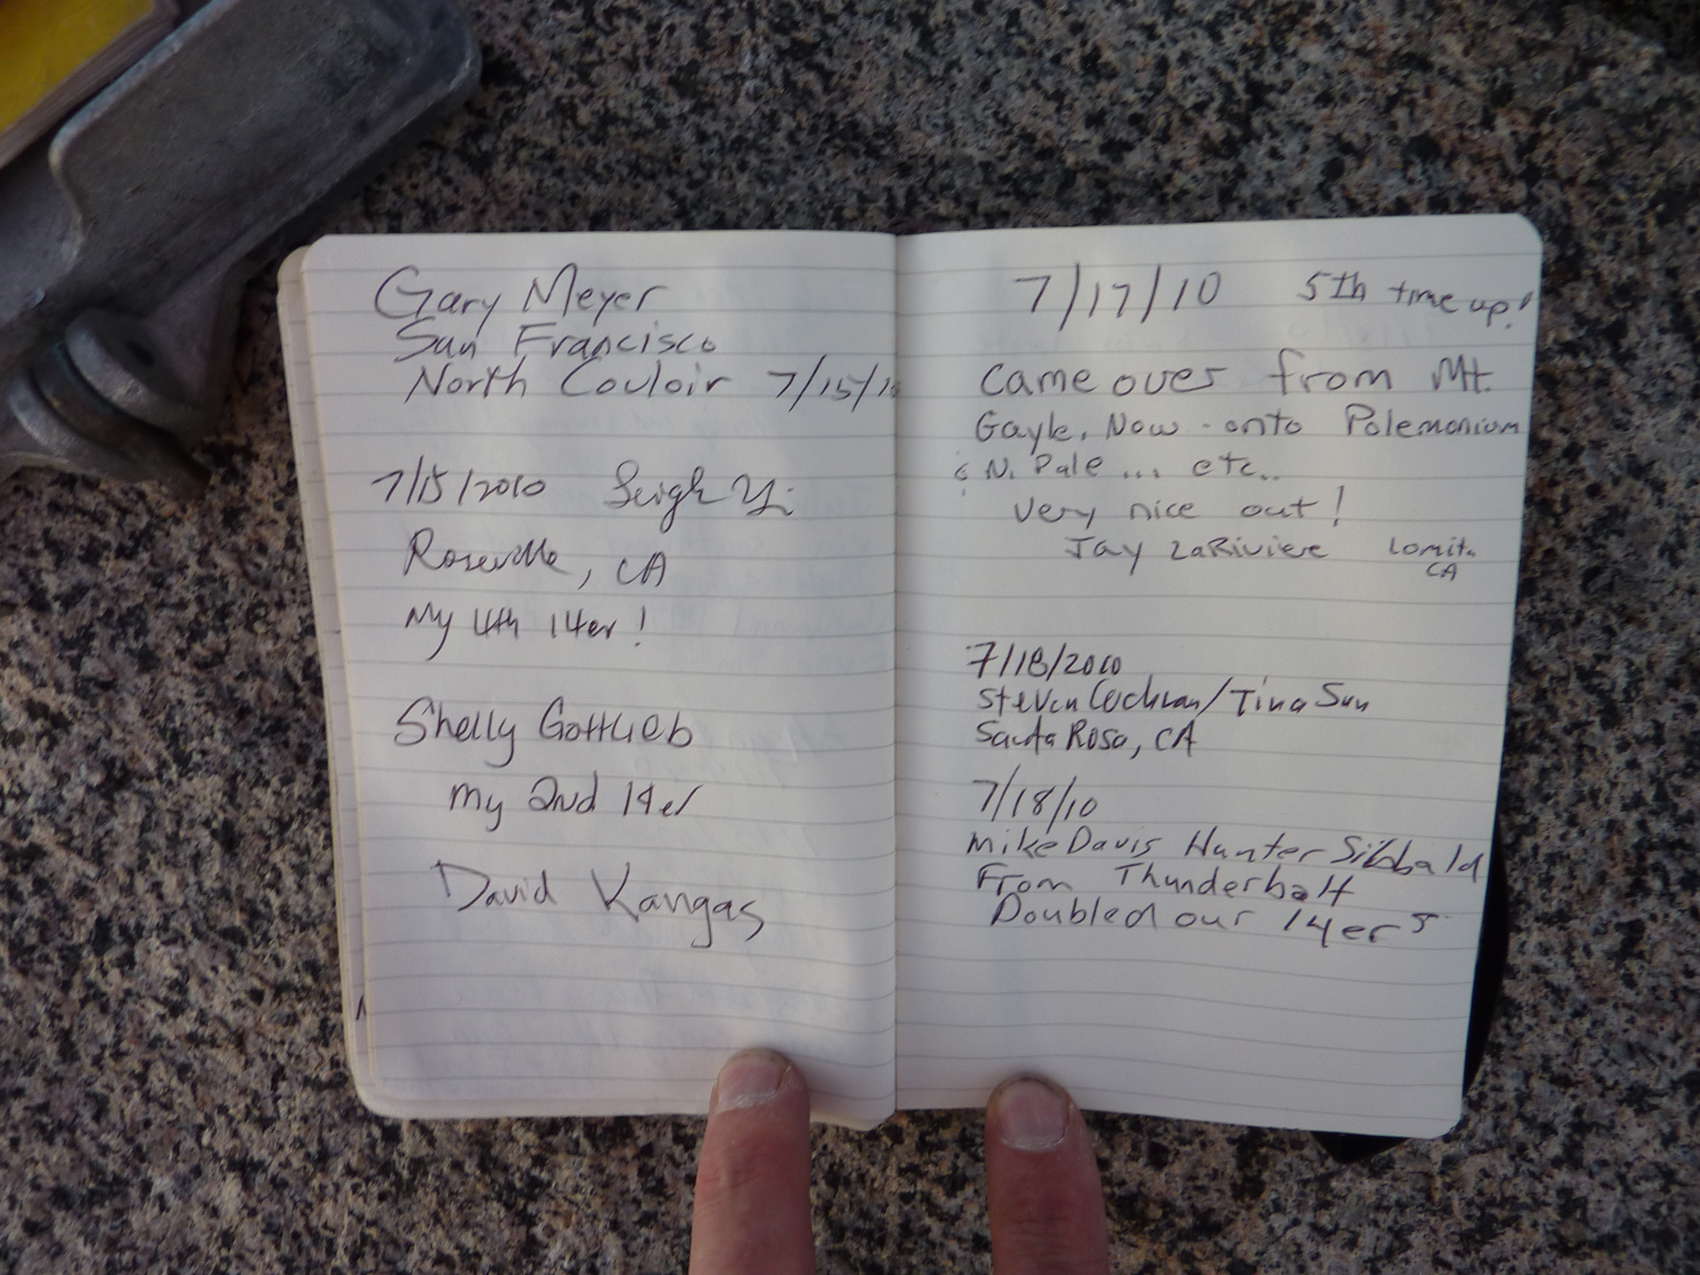 Gary Meyer
San Francisco
North Couloir 7/15/10
7/15/2010 Leigh
Roseville, CA
My 4th 14er!
Shelly Gottlieb
my 2nd 14er
David Kangas
7/17/10 5th time up!
Came over from Mt.
Gayle. Now onto Polemonium
& N. Pale... etc..
very nice out!
Jay LaRiviere Lomita
CA
7/18/2010
Steven Cochran/Tina Sun
Santa Rosa, CA
7/18/10
Mike Davis Hunter Sibbald
From Thunderbolt
Doubled our 14ers